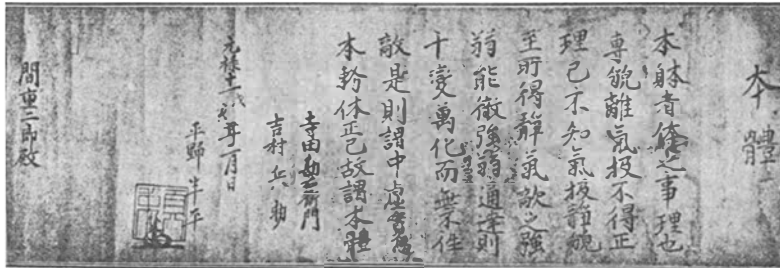 本體
本躰者體之事理也
專貌離氣扱不得正
理己不知氣扱静貌
至所得静氣敵之強
弱能徹強弱通達則
千變萬化而無不住
敵是則謂中虛實
本幹体正己故謂本體
寺田勘右衛門
吉村兵助
元禄十一戊寅年二月日
平野半平
間重二郎殿